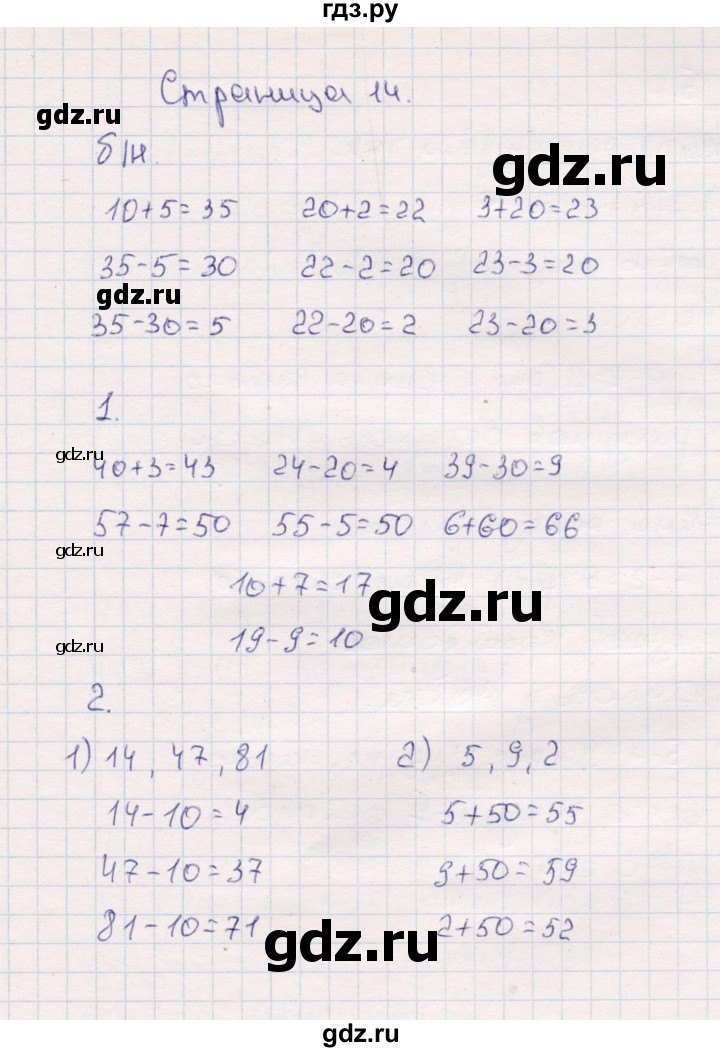 гдз.ру
Страница 14.
gdz.ru
б/н.
gdz.ru
10+5=35 20+2=22 3+20=23
35-5=30 22-2=20 23-3=20
gdz.ru
35-30=5 22-20=2 23-20=3
1.
gdz.ru
40+3=43 24-20=4 39-30=9
57-7=50 55-5=50 6+60=66
gdz.ru
10+7=17
gdz.ru
19-9=10
gdz.ru
2.
1) 14, 47, 81 2) 5, 9, 2
14-10=4 5+50=55
47-10=37 9+50=59
81-10=71 2+50=52
gdz.ru
gdz.ru